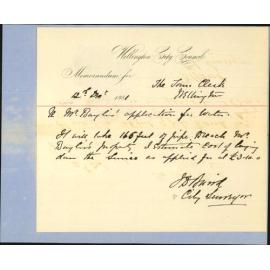 Wellington City Council
Memorandum for
The Town Clerk
12th Decr 1881
Wellington
Re Mr Baylis's application for Water
It will take 166 feet of pipe to reach Mr
property. I estimate cost of laying
down the Service as applied for at £3.10.0
J D Baird
City Surveyor